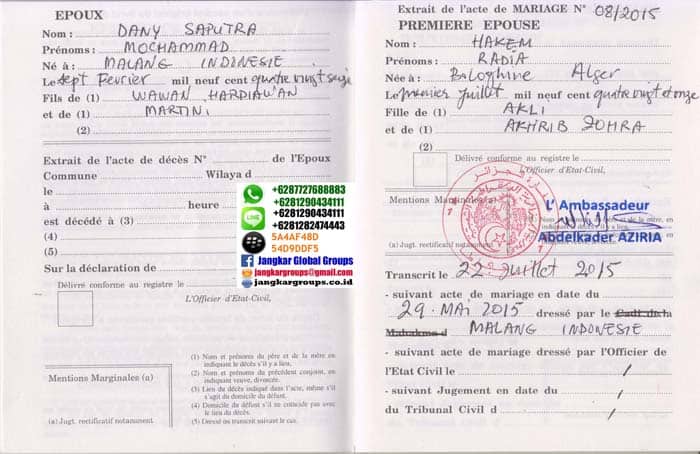 EPOUX
Nom : DANY SAPUTRA
Prénoms : MOCHAMMAD
Né à : MALANG INDONESIE
Le sept Fevrier mil neuf cent quatre vingt seize
Fils de (1) WAWAN HARDIAWAN
et de (1) MARTINI
(2)
Extrait de l'acte de décès N° de l'Epoux
Commune Wilaya d
le
à heure
est décédé à (3)
(4)
(5)
Sur la déclaration de
Délivré conforme au registre le
L'Officier d'Etat-Civil,
Mentions Marginales (a)
(a) Jugt. rectificatif notamment
(1) Nom et prénoms du père et de la mère en indiquant le décès s'il y a lieu,
(2) Nom et prénoms du précédent conjoint, en indiquant veuve, divorcée.
(3) Lieu du décès indiqué dans l'acte, même s'il s'agit du domicile du défunt.
(4) Domicile du défunt s'il ne coïncide pas avec le lieu du décès.
(5) Dressé ou transcrit suivant le cas.
+6287727688883
+6281290434111
+6281290434111
+6281282474443
5A4AF48D
54D9DDF5
Jangkar Global Groups
jangkargroups@gmail.com
jangkargroups.co.id
Extrait de l'acte de MARIAGE N° 08/2015
PREMIERE EPOUSE
Nom : HAKEM
Prénoms : RADIA
Née à : Bologhine Alger
Le premier Juillet mil neuf cent quatre vingt et onze
Fille de (1) AKLI
et de (1) AKHRIB ZOHRA
(2)
Délivré conforme au registre le
L'Officier d'Etat-Civil,
Mentions Marginales (a)
L' Ambassadeur
Abdelkader AZIRIA
(a) Jugt. rectificatif notamment
Transcrit le 22 Juillet 2015
- suivant acte de mariage en date du
29 MAI 2015 dressé par le Cadi de la
Mahakma d MALANG INDONESIE
- suivant acte de mariage dressé par l'Officier de
l'Etat Civil le /
- suivant Jugement en date du /
du Tribunal Civil d /